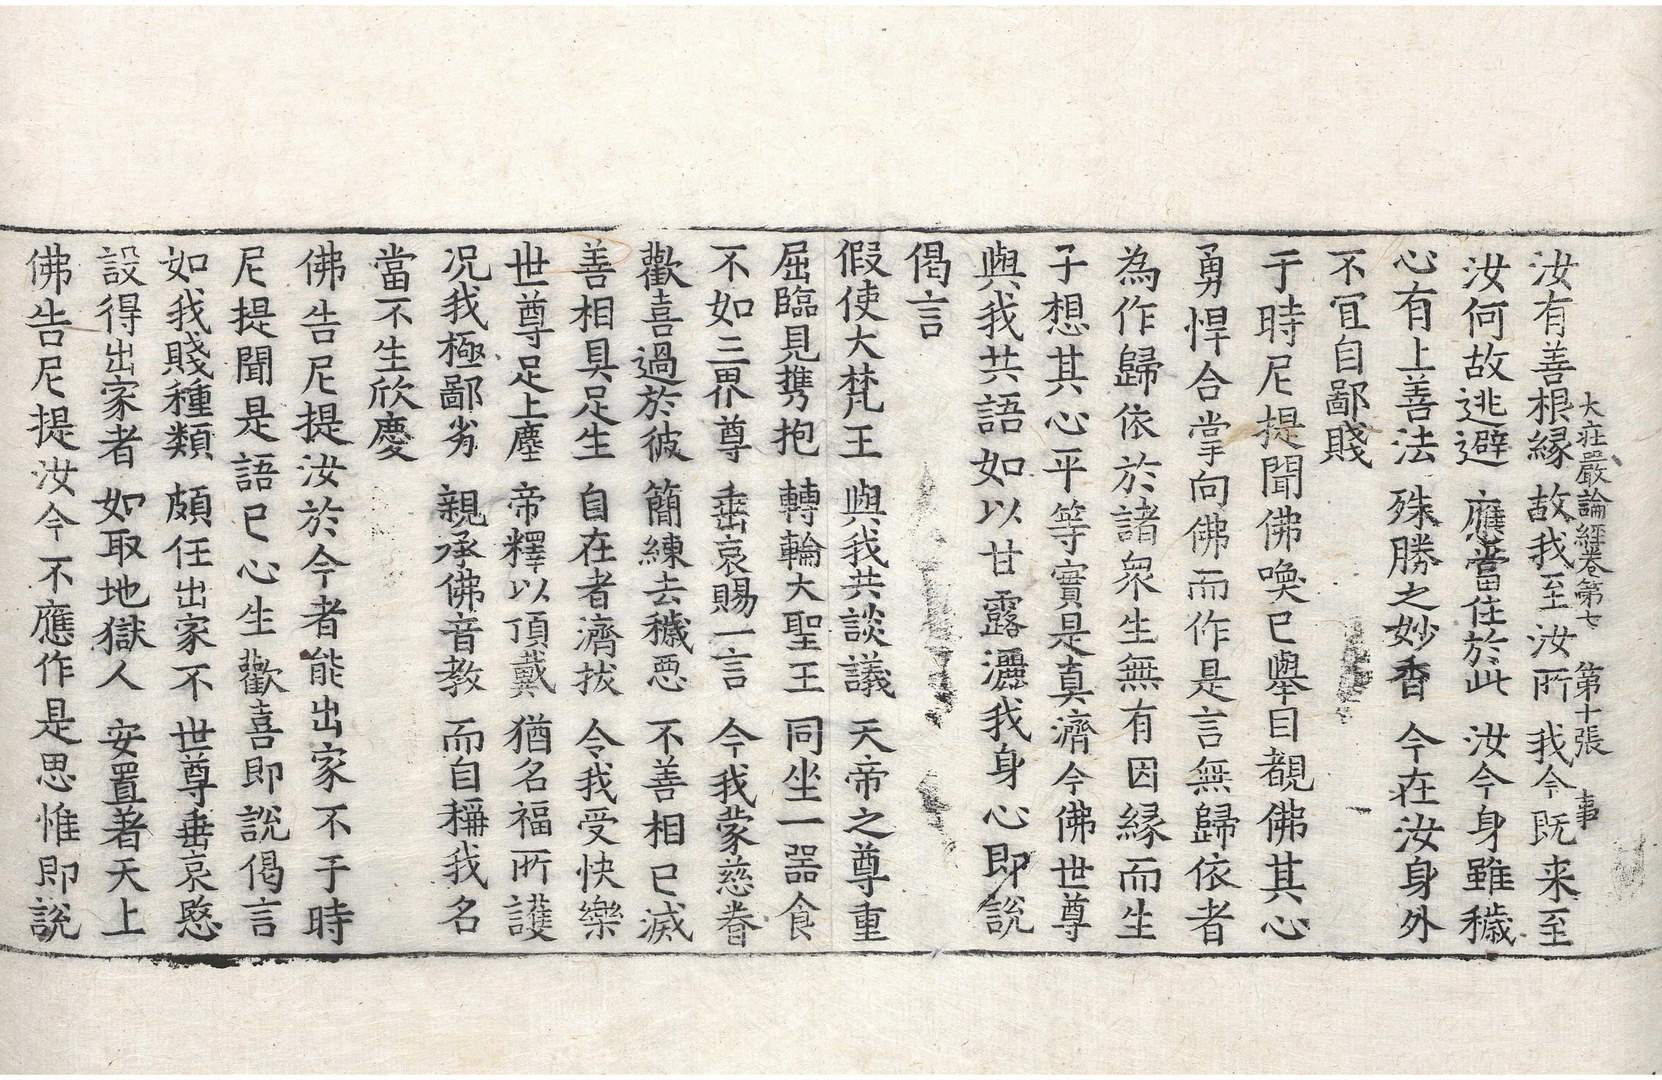 大庄嚴論經卷第七　第十張　事
汝有善根縁　故我至汝所　我今既来至
汝何故逃避　應當住於此　汝今身雖穢
心有上善法　殊勝之妙香　今在汝身外
不宜自鄙賤
于時尼提聞佛喚已舉目覩佛其心
勇悍合掌向佛而作是言無歸依者
為作歸依於諸衆生無有因縁而生
子想其心平等實是真濟今佛世尊
與我共語如以甘露灑我身心即說
偈言
假使大梵王　與我共談議　天帝之尊重
屈臨見携抱　轉輪大聖王　同坐一器食
不如三界尊　垂哀賜一言　今我蒙慈眷
歡喜過於彼　簡練去穢惡　不善相已滅
善相具足生　自在者濟拔　令我受快樂
世尊足上塵　帝釋以頂戴　猶名福所護
況我極鄙劣　親承佛音教　而自稱我名
當不生欣慶
佛告尼提汝於今者能出家不于時
尼提聞是語已心生歡喜即說偈言
如我賤種類　頗任出家不　世尊垂哀愍
設得出家者　如取地獄人　安置著天上
佛告尼提汝今不應作是思惟即說